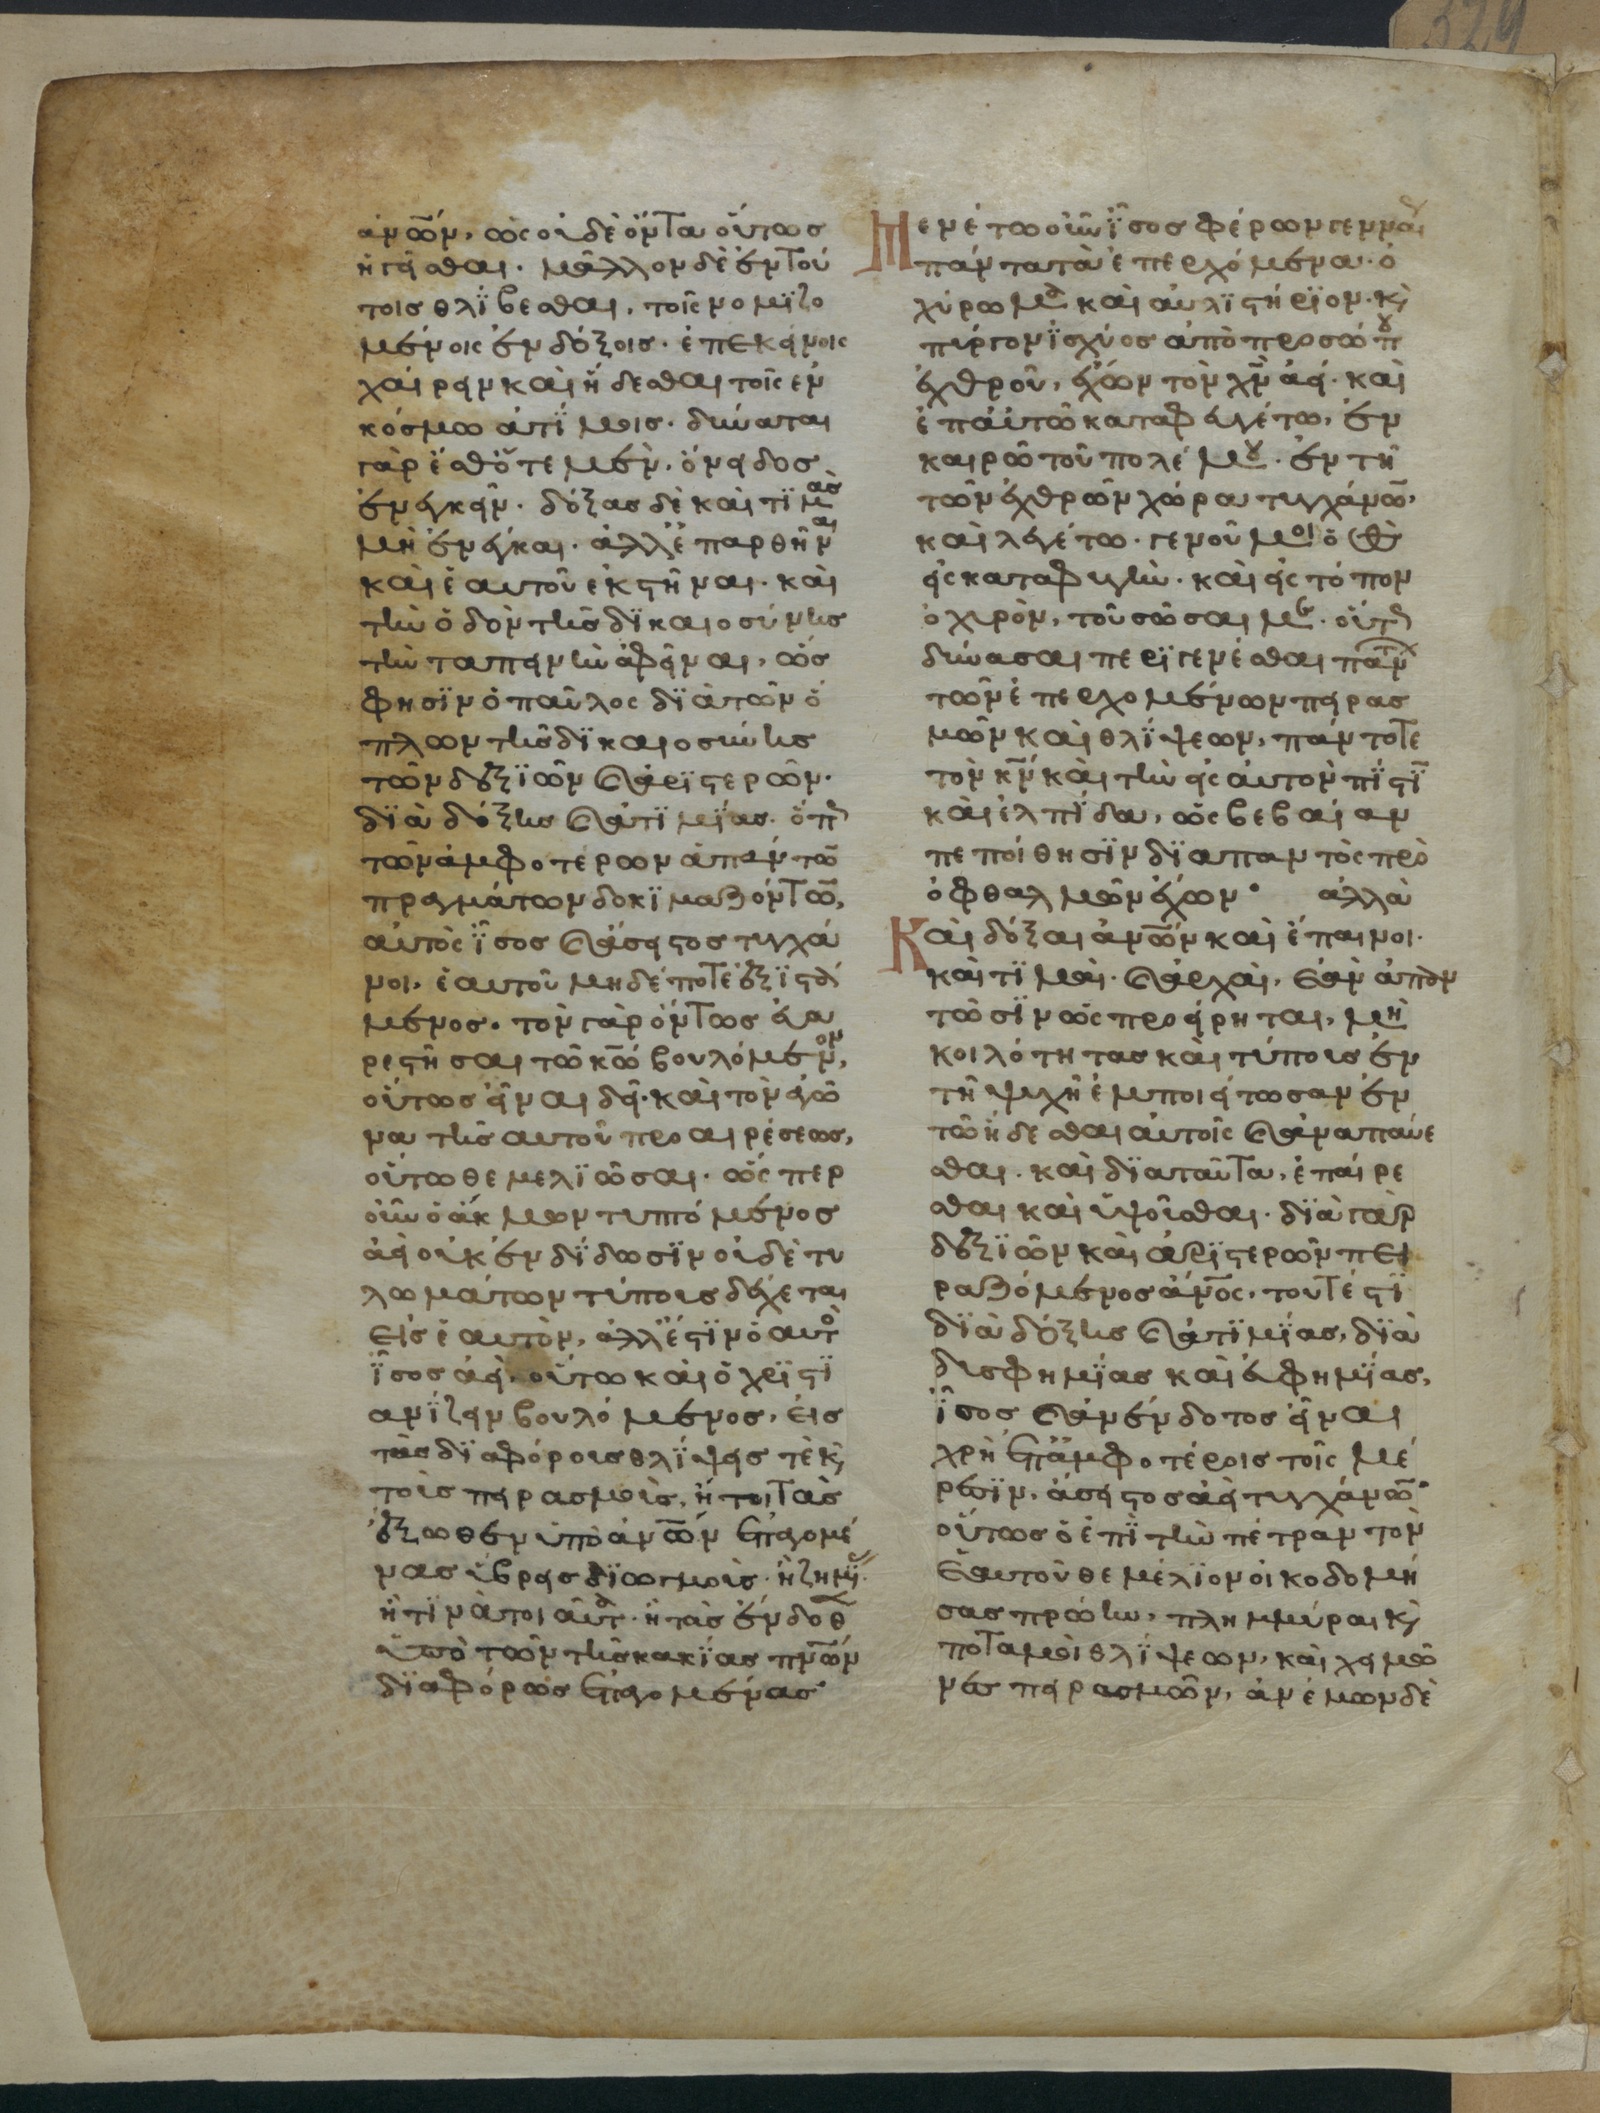 ἀν̅ω̅ν, ὡς οὐδὲ ὄντα οὕτως
ἡγεῖσθαι. μᾶλλον δὲ ἐν τού
τοις θλΐβεσθαι, τοῖς νομϊζο
μένοις ἐνδόξοις. ἐπεκείνοις
χαίρειν καὶ ἥδεσθαι τοῖς ἐν
κόσμω ἀτΐμοις. δύναται
γὰρ ἔσθ' ὅτε μὲν, ὄνειδος
ἐνεγκεῖν. δόξας δὲ καὶ τϊμὰς
μὴ ἐνέγκαι. ἀλλ' ἐπαρθῆναι
καὶ ἑαυτοῦ ἐκστῆναι. καὶ
τὴν ὁδὸν τῆς δϊκαιοσύνης
τὴν ταπεινὴν ἀφεῖναι, ὥς
φησϊν ὁ παῦλος δϊὰ τῶν ὅ
πλων τῆς δϊκαιοσύνης
τῶν δεξϊῶν καὶ ἀρϊστερῶν.
δϊὰ δόξης καὶ ἀτϊμΐας. ὅπως
τῶν ἀμφοτέρων ἁπάντω̅
πραγμάτων δοκϊμαζόντω̅,
αὐτὸς ἶσος καὶ ἄσειστος τυγχά
νοι, ἑαυτοῦ μηδέποτε ἐξϊστά
μενος. τὸν γὰρ ὄντως εὐα
ρεστῆσαι τῶ κ̅ω̅ βουλόμενον,
οὕτως εἶναι δεῖ. καὶ τὸν ἀγῶ
να τῆς αυτοῦ προαιρέσεως,
οὕτω θεμελϊῶσαι. ὥς περ
οὖν ὁ ἄκμων τυπτόμενος
ἀεὶ οὐκ ἐνδΐδωσϊν οὐδὲ τυ
λωμάτων τύπους δέχεται
εἰς ἑαυτὸν, ἀλλ' ἔστϊν ὁ αὐτὸ
ἶσος ἀεὶ. οὕτω καὶ ὁ χρϊστϊ
ανΐζειν βουλόμενος, εἰς
τὰς δϊαφόρους θλΐψεις τὲ κ(αὶ)
τοὺς πειρασμοὺς, ἤτοι τὰς
ἔξωθεν ὑπὸ ἀν̅ω̅ν ἐπαγομέ
νας ὕβρεις δϊωγμοὺς. ἢ ζημΐας.
ἢ τϊνὰ τοιαῦτα. ἢ τὰς ἔνδοθεν
ὑπὸ τῶν τῆς κακΐας πν̅ω̅ν
δϊαφόρως ἐπαγομένας
Μενέτω οὖν ἶσος φέρων γενναί
πάντα τὰ ἐπερχόμενα. ὀ
χύρωμα καὶ αὐλϊστήρϊον. κ(αὶ)
πύργον ϊσχύος ἀπὸ προσώπου
ἐχθροῦ, ἔχων τὸν χ̅ν̅ ἀεὶ. καὶ
ἐπαὐτῶ καταφευγέτω, ἐν
καιρῶ τοῦ πολέμου. ἐν τῆ
τῶν ἐχθρῶν χώρα τυγχάνω̅,
καὶ λεγέτω. γενοῦ μοι ὁ θ̅ς̅
εἰς καταφυγὴν. καὶ εἰς τόπον
ὀχυρὸν, τοῦ σῶσαι με. οὕτως
δύνασαι περϊγενέσθαι πάντ
τῶν ἐπερχομένων πειρας
μῶν καὶ θλΐψεων, πάντοτε
τὸν κ̅ν̅ καὶ τὴν εἰς αὐτὸν πΐστϊ̅
καὶ ἐλπΐδα, ὡς βεβαίαν
πεποίθησϊν δϊαπαντὸς πρὸ
ὀφθαλμῶν ἔχων. ἀλλὰ
Καὶ δόξαι ἀν̅ω̅ν καὶ ἔπαινοι.
καὶ τϊμαὶ. καὶ ἀρχαὶ, ἐὰν ἀπαν
τῶσϊν ὡς προείρηται, μὴ
κοιλότητας καὶ τύπους ἐν
τῆ ψυχῆ ἐμποιείτωσαν ἐν
τῶ ἥδεσθαι αὐτοῖς καὶ ἀναπαύε
σθαι. καὶ δϊαταῦτα, ἐπαίρε
σθαι καὶ ὑψοῦσθαι. δϊὰ γὰρ
δεξϊῶν καὶ ἀρϊστερῶν πει
ραζόμενος ἄν̅ο̅ς, τουτέστϊ
δϊὰ δόξης καὶ ἀτϊμΐας, δϊὰ
δυσφημΐας καὶ εὐφημΐας,
ἶσος καὶ ἀνένδοτος εἶναι
χρὴ ἐπ' ἀμφοτέροις τοῖς μέ
ρεσϊν, ἄσειστος ἀεὶ τυγχάνω̅.
οὕτως ὁ ἐπὶ τὴν πέτραν τὸν
ἑαυτοῦ θεμέλϊον οἰκοδομή
σας πρώην, πλημμύραι κ(αὶ)
ποταμοὶ θλΐψεων, καὶ χειμῶ
νες πειρασμῶν, ἀνέμων δὲ